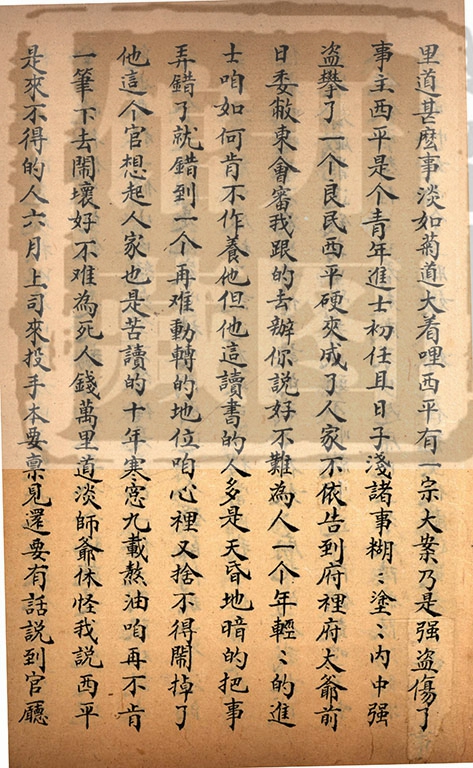 里道甚麽事淡如菊道大着哩西平有一宗大案乃是强盗傷了
事主西平是个青年進士初任且日子淺諸事糊〻塗〻内中强
盗攀了一个良民西平硬夾成了人家不依告到府裡府太爺前
日委敝東會審我跟的去辦你説好不難為人一个年輕〻的進
士咱如何肯不作養他但他這讀書的人多是天昏地暗的把事
弄錯了就錯到一个再难動轉的地位咱心裡又捨不得鬧掉了
他這个官想起人家也是苦讀的十年寒窓九載熬油咱再不肯
一筆下去鬧壞好不难為死人錢萬里道淡師爺休怪我説西平
是來不得的人六月上司來投手本要禀見還要有話説到官廳